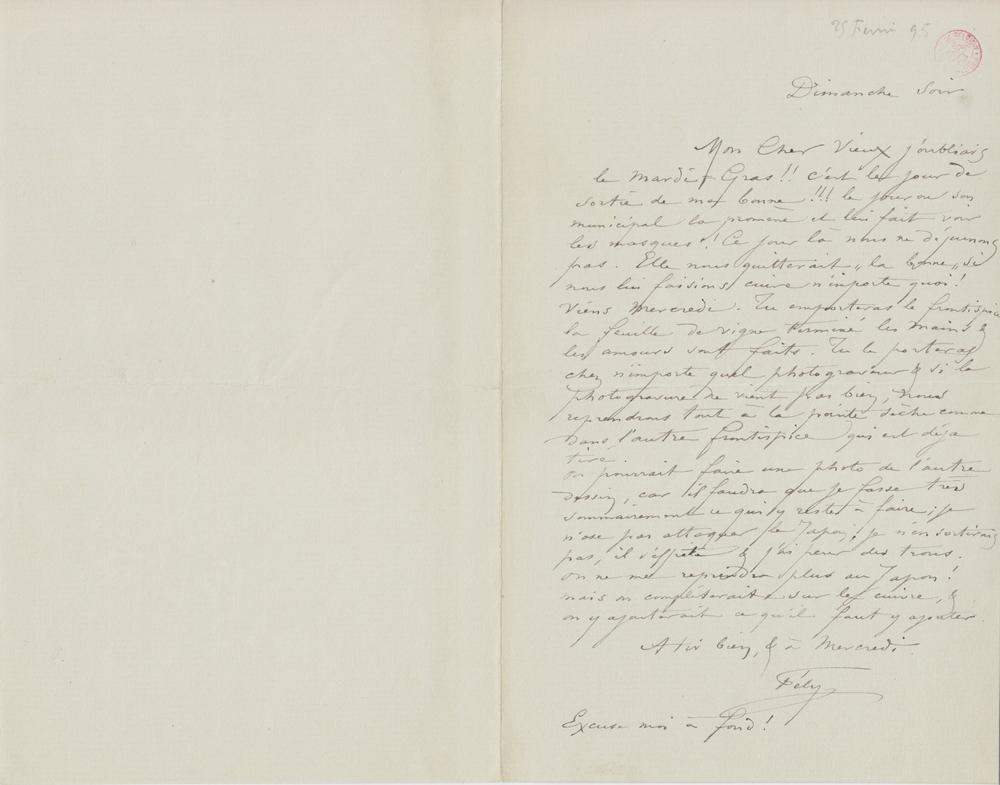 25 Fevri 95
Dimanche Soir
Mon Cher Vieux j'oubliais
le Mardi-Gras!! c'est le jour de
sortie de ma bonne!!! le jour ou son
municipal la promène et lui fait voir
les masques! Ce jour là nous ne déjeunons
pas. Elle nous quitterait „la bonne„ si
nous lui faisions cuire n'importe quoi!
Viens Mercredi. Tu emporteras le frontispice
la feuille de vigne terminé les mains &
les amours sont faits. Tu le porteras
chez n'importe quel photograveur & si la
photogravure ne vient pas bien, nous
reprendrons tout à la pointe sèche comme
dans l'autre frontispice qui est déja
tiré.
On pourrait faire une photo de l'autre
dessin, car il faudra que je fasse très
sommairement ce qu'il y reste à faire, je
n'ose pas attaquer le Japon, je n'en sortirais
pas, il s'effrite & j'ai peur des trous.
On ne me reprendra plus au Japon!
mais on complèterait sur le cuivre, &
on y ajouterait ce qu'il faut y ajouter.
A toi bien, & à Mercredi.
Fély
Excuse moi à fond!